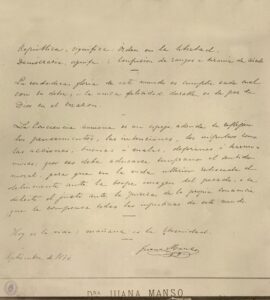 República, significa: Orden en la libertad.
Democracia, signific: confusion de rangos
La verdadera gloria de este mundo es cumplir cada cual
con su deber, la unica felicidad durable es la paz de
Dios en el corazon.
La Conciencia humana es un espejo adonde se reflejan
los pensamientos, las intenciones, los impulsos como
las acciones, buenas o malas, deformes o hermo-
sas, por eso debe educarse temprano el sentido
moral, para que en la vida ulterior retroceda el
delincuente ante la torpe imagen del pecado, o se
deleite el justo ante la pureza de la propia conciencia
que la compensa todas las injusticias de este mundo.
Hoy es la vida: mañana es la Eternidad.
Juana Manso
Setiembre de 1874
DRA JUANA MANSO